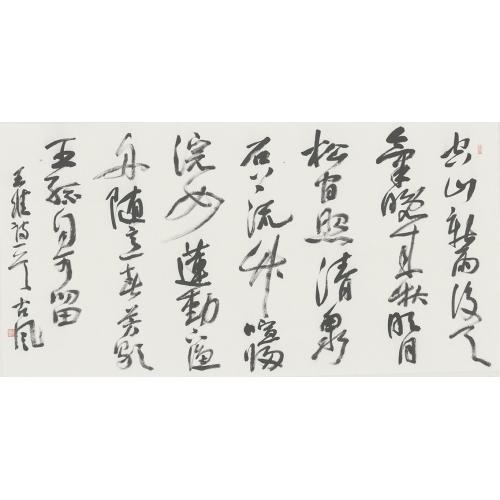 空山新雨後天
氣晚来秋明月
松間照清泉
石上流竹喧歸
浣女蓮動下漁
舟隨意春芳歇
王孫自可留
王維詩一首 古風